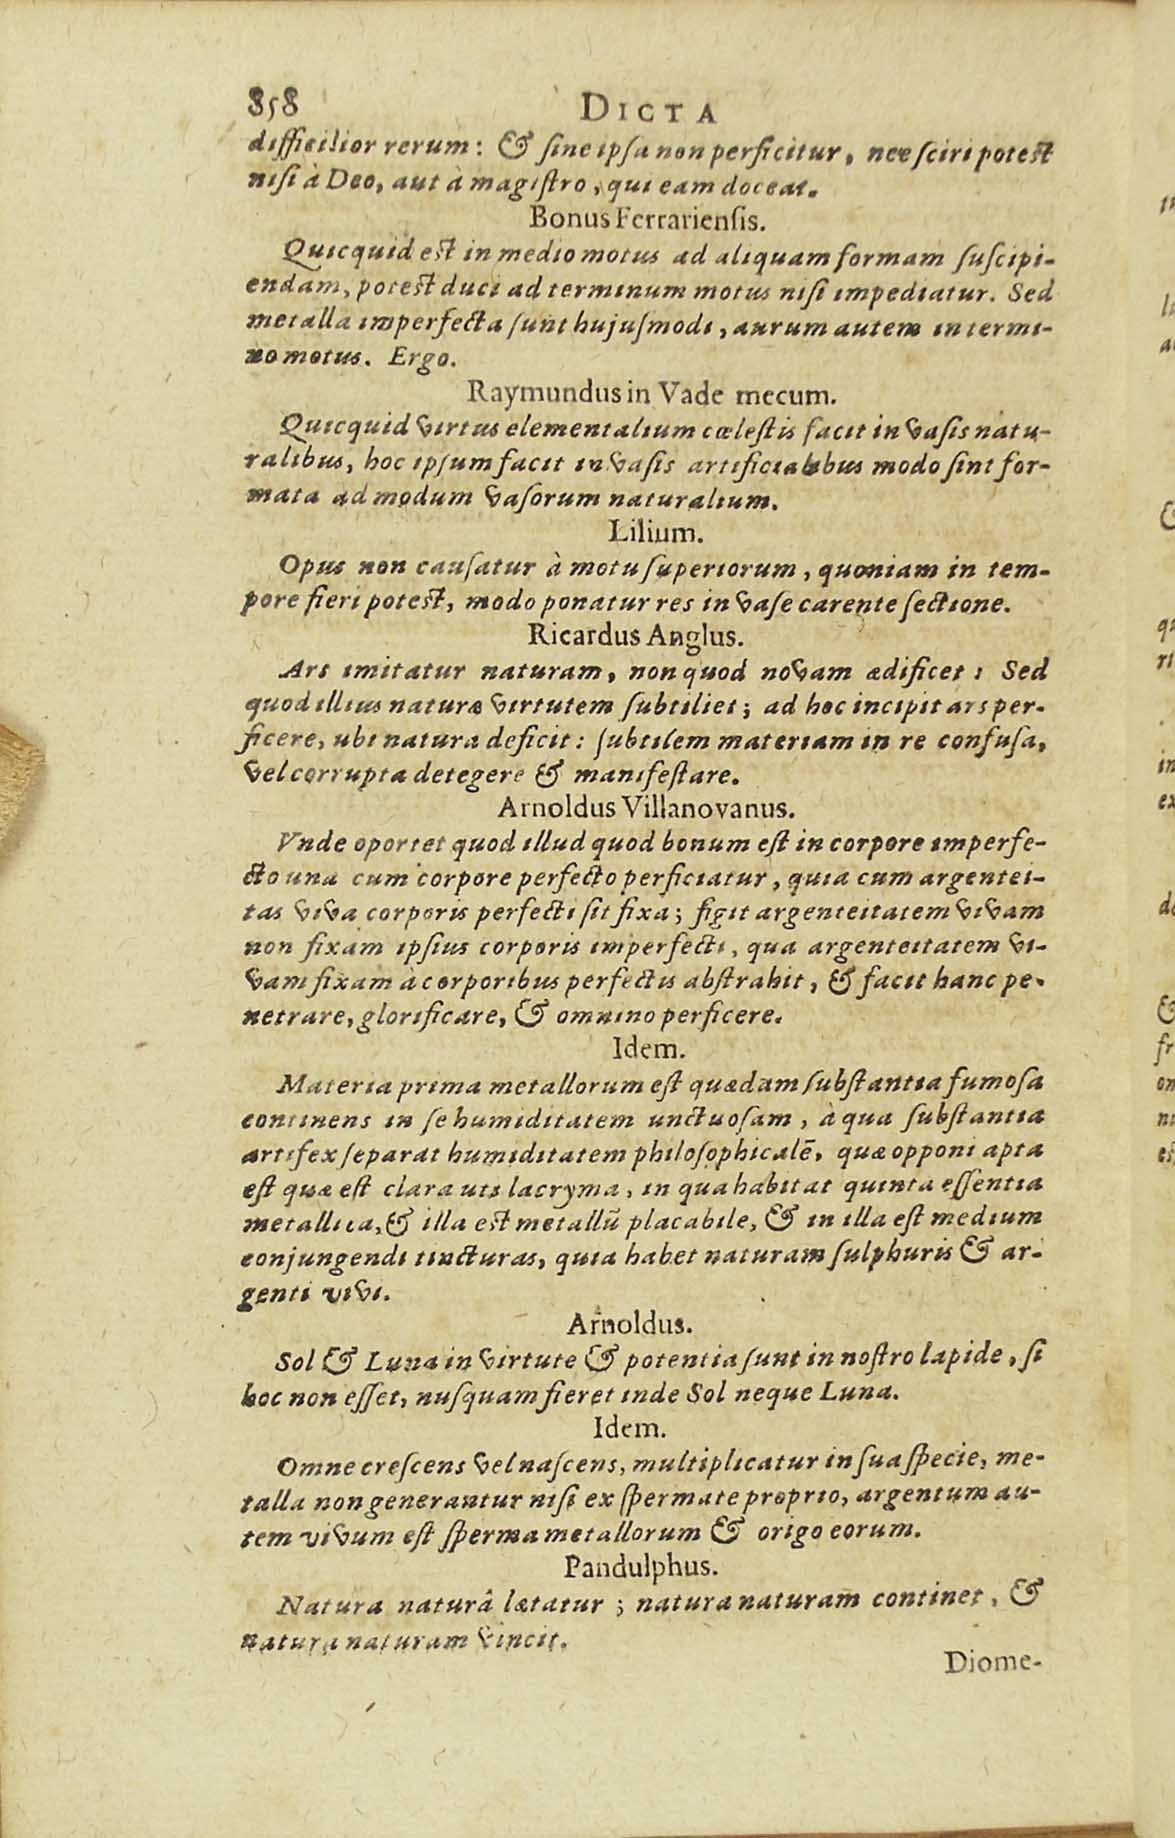 858 DICTA
difficilior rerum: & ſine ipſa non perficitur, nec ſciri poteſt
niſi à Deo, aut à magiſtro, qui eam doceat.
Bonus Ferrarienſis.
Quicquid eſt in medio motus ad aliquam formam ſuſcipi-
endam, poteſt duci ad terminum motus niſi impediatur. Sed
metalla imperfecta ſunt hujuſmodi, aurum autem in termi-
no motus. Ergo.
Raymundus in Vade mecum.
Quicquid virtus elementalium cœleſtis facit in vaſis natu-
ralibus, hoc ipſum facit in vaſis artificialibus modo ſint for-
mata ad modum vaſorum naturalium.
Lilium.
Opus non cauſatur à motu ſuperiorum, quoniam in tem-
pore fieri poteſt, modo ponatur res in vaſe carente ſectione.
Ricardus Anglus.
Ars imitatur naturam, non quod novam ædificet: Sed
quod illius naturæ virtutem ſubtiliet; ad hoc incipit ars per-
ficere, ubi natura deficit: ſubtilem materiam in re confuſa,
vel corrupta detegere & manifeſtare.
Arnoldus Villanovanus.
Vnde oportet quod illud quod bonum eſt in corpore imperfe-
cto una cum corpore perfecto perficiatur, quia cum argentei-
tas viva corporis perfecti ſit fixa; figit argenteitatem vivam
non fixam ipſius corporis imperfecti, qua argenteitatem vi-
vam fixam à corporibus perfectis abſtrahit, & facit hanc pe-
netrare, glorificare, & omnino perficere.
Idem.
Materia prima metallorum eſt quædam ſubſtantia fumoſa
continens in ſe humiditatem unctuoſam, à qua ſubſtantia
artifex ſeparat humiditatem philoſophicalē, quæ opponi apta
eſt quæ eſt clara uti lacryma, in qua habitat quinta eſſentia
metallica, & illa eſt metallū placabile, & in illa eſt medium
conjungendi tincturas, quia habet naturam ſulphuris & ar-
genti vivi.
Arnoldus.
Sol & Luna in virtute & potentia ſunt in noſtro lapide, ſi
hoc non eſſet, nuſquam fieret inde Sol neque Luna.
Idem.
Omne creſcens vel naſcens, multiplicatur in ſua ſpecie, me-
talla non generantur niſi ex ſpermate proprio, argentum au-
tem vivum eſt ſperma metallorum & origo eorum.
Pandulphus.
Natura naturâ lætatur; natura naturam continet, &
natura naturam vincit.
Diome-